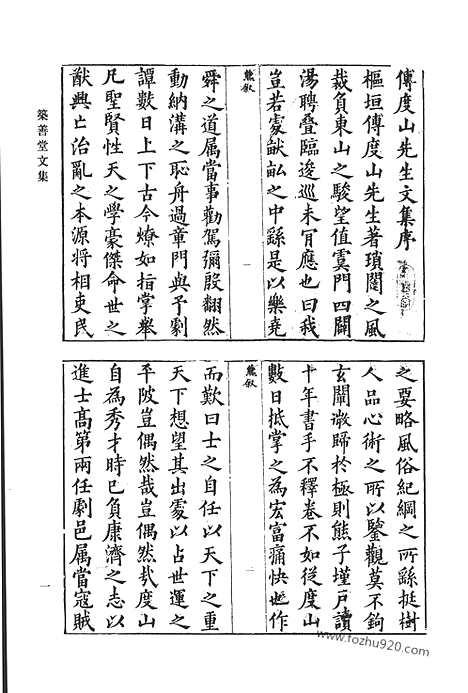 傅度山先生文集序
樞垣傅度山先生著瑣闥之風
裁負東山之駿望值虞門四闢
湯聘叠臨逡巡未肎應也曰我
豈若處畎畝之中繇是以樂堯
熊叙
一
舜之道属當事勸駕彌殷翻然
動納溝之恥舟過章門與予劇
譚數日上下古今燎如指掌舉
凡聖賢性天之學豪傑命世之
猷興亡治亂之本源將相吏民
之要略風俗紀綱之所繇挺樹
人品心術之所以鑒觀莫不鉤
玄闡微歸於極則熊子墐戸讀
十年書手不釋卷不如從度山
數日抵掌之為宏富痛快也作
熊叙
二
而歎曰士之自任以天下之重
天下想望其出處以占世運之
平陂豈偶然哉豈偶然哉度山
自為秀才時已負康濟之志以
進士高第兩任劇邑属當寇賊
築善堂文集
一
www.fozhu920.com